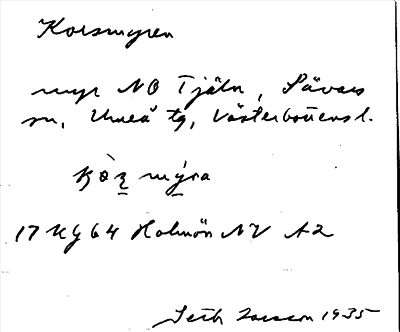 Korsmyren
myr NO Tjäln, Sävars
sn, Umeå tg, Västerbottens l.
myra
17 Kg 64 Holmön NV A2
Seth Larsson 1935